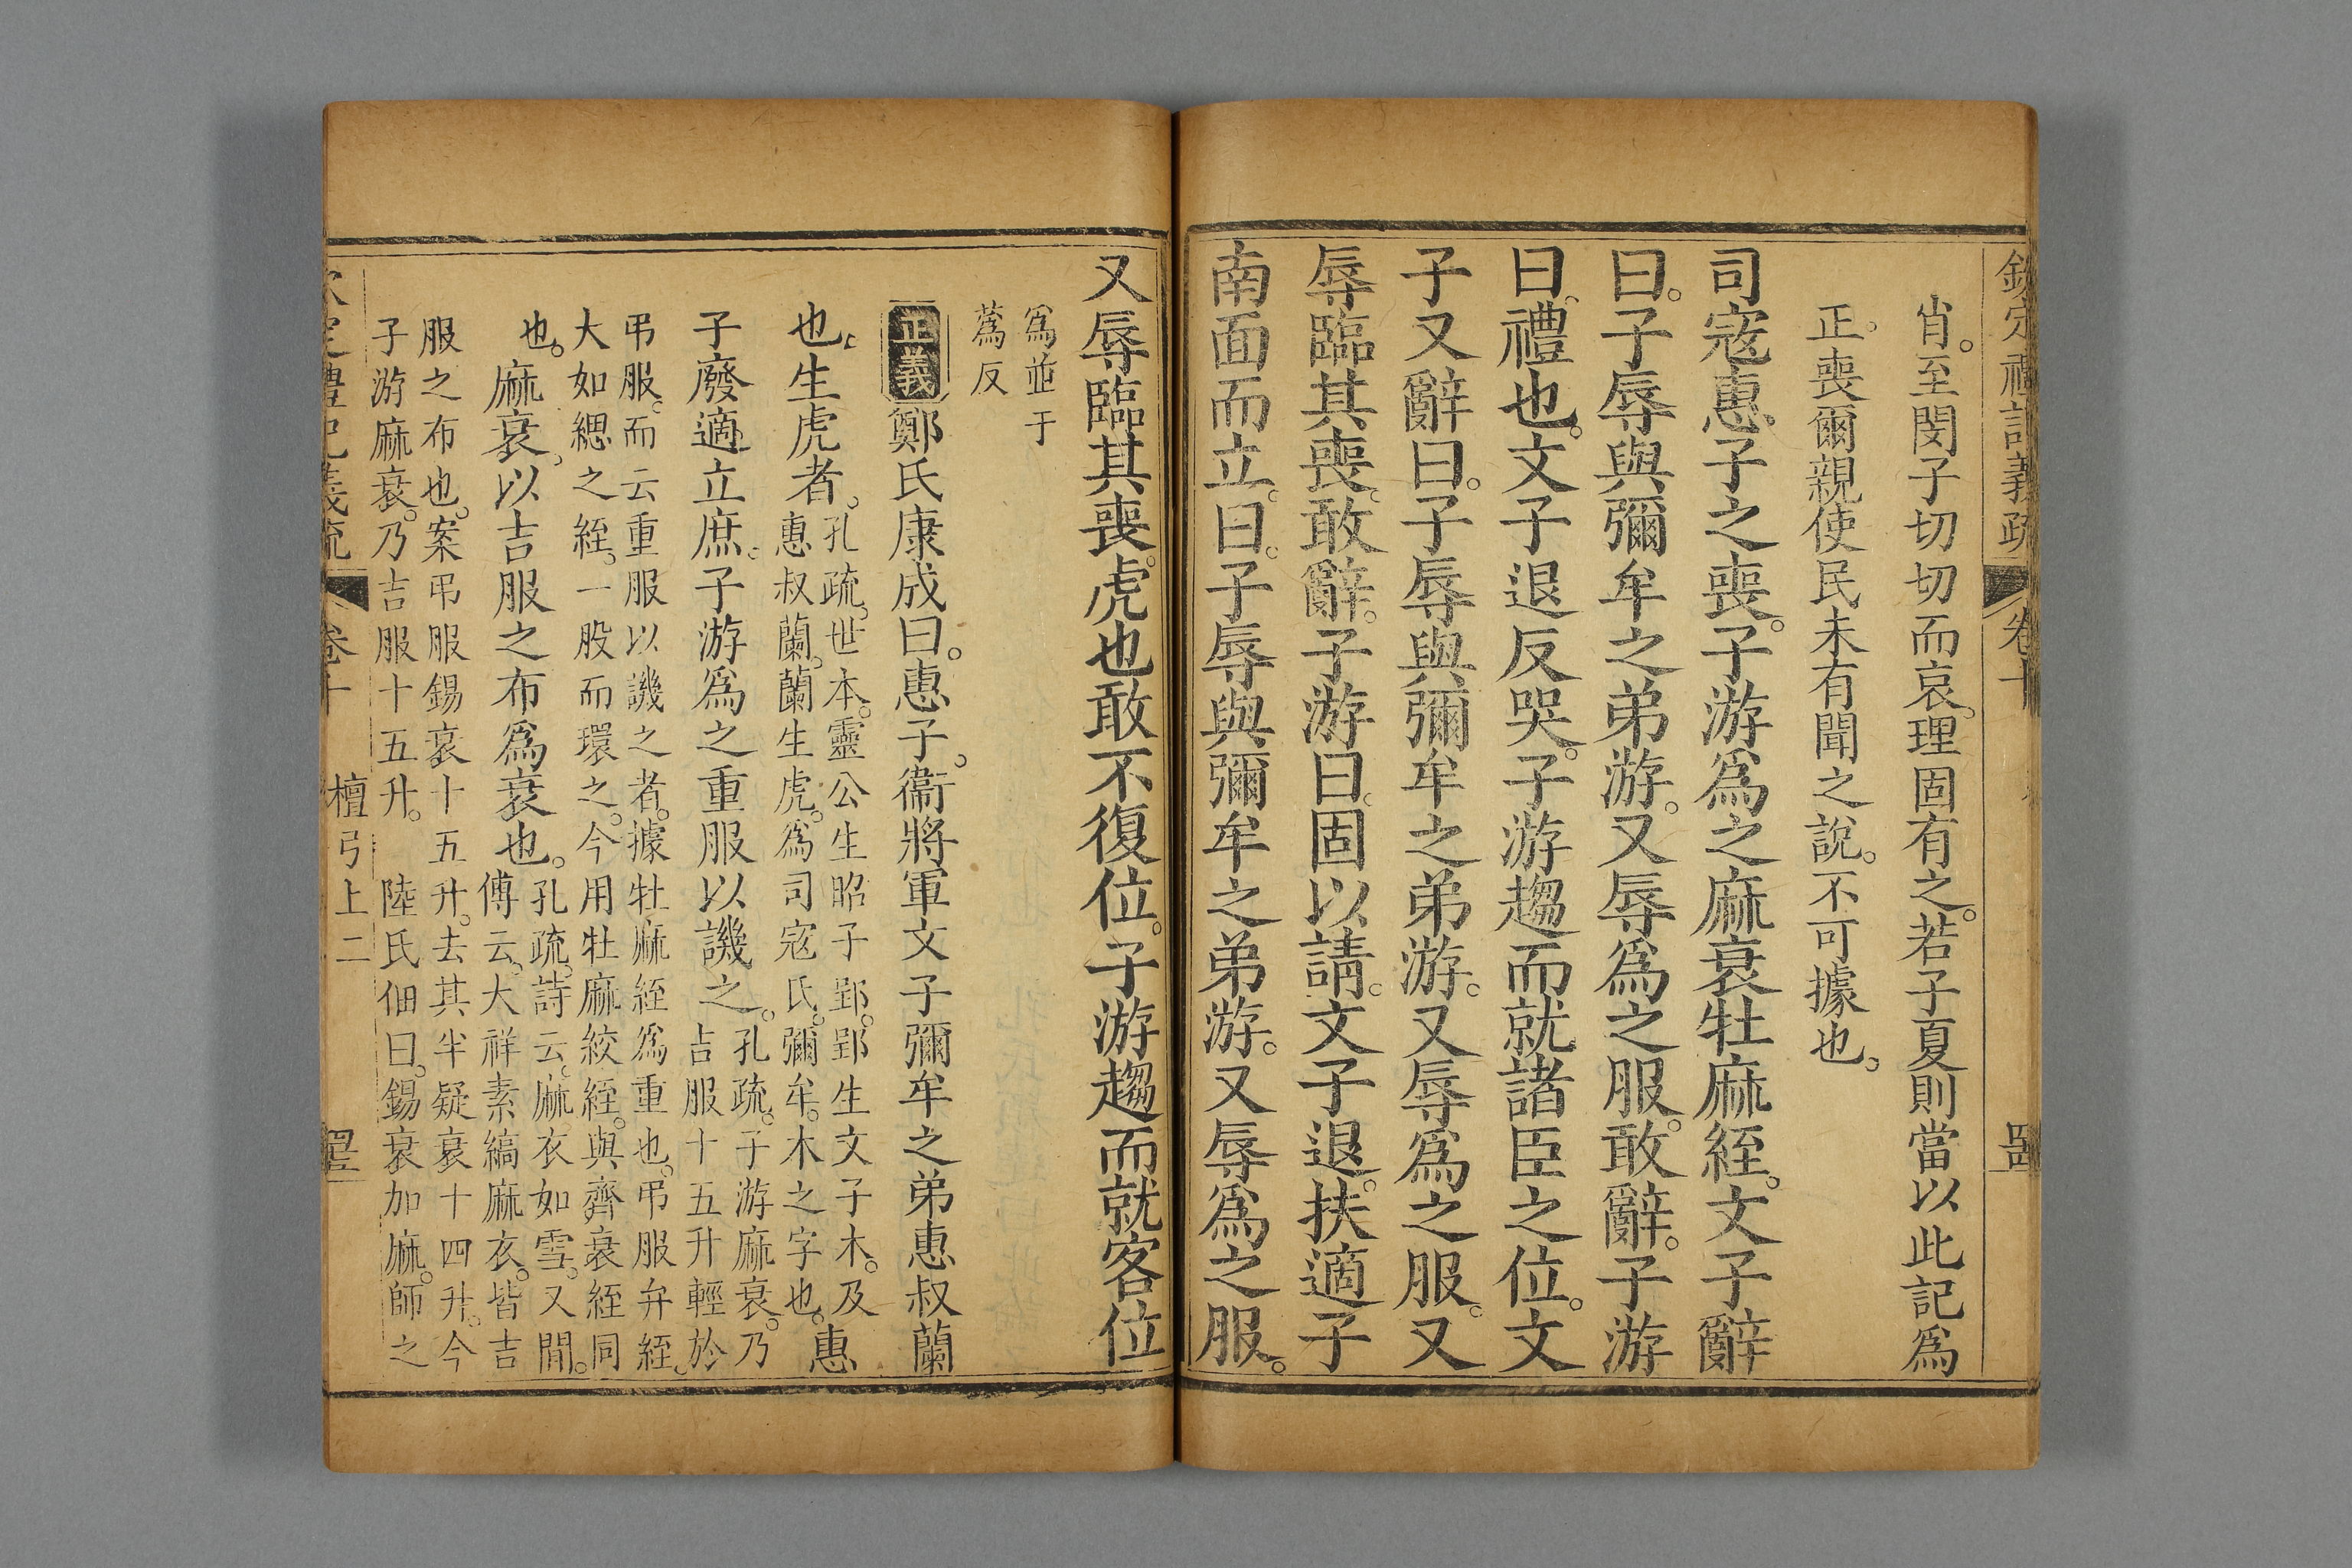 欽定禮記義疏 卷十
肖。至閔子切切而哀。理固有之。若子夏則當以此記爲
正。喪爾親使民未有聞之說。不可據也。
司宼惠子之喪。子游爲之麻衰牡麻絰。文子辭
曰。子辱與彌牟之弟游。又辱爲之服。敢辭。子游
曰。禮也。文子退反哭。子游趨而就諸臣之位。文
子又辭曰。子辱與彌牟之弟游。又辱爲之服。又
辱臨其喪。敢辭。子游曰。固以請。文子退。扶適子
南面而立。曰。子辱與彌牟之弟游。又辱爲之服。
又辱臨其喪。虎也敢不復位。子游趨而就客位
爲並于
蒍反
正義 鄭氏康成曰。惠子。衞將軍文子彌牟之弟惠叔蘭
也。生虎者。
孔疏。世本。靈公生昭子郢。郢生文子木。及
惠叔蘭。蘭生虎。爲司宼氏。彌牟。木之字也。
惠
子廢適立庶。子游爲之重服以譏之。
孔疏。子游麻衰。乃
吉服十五升輕於
弔服。而云重服以譏之者。據牡麻絰爲重也。弔服弁絰。
大如緦之絰。一股而環之。今用牡麻絞絰。與齊衰絰同
也。
麻衰。以吉服之布爲衰也。
孔疏。詩云。麻衣如雪。又閒。
傅云。大祥素縞麻衣。皆吉
服之布也。案弔服錫衰十五升。去其半疑衰十四升。今
子游麻衰。乃吉服十五升。
陸氏佃曰。錫衰加麻。師之
欽定禮記義疏 卷十 檀弓上二